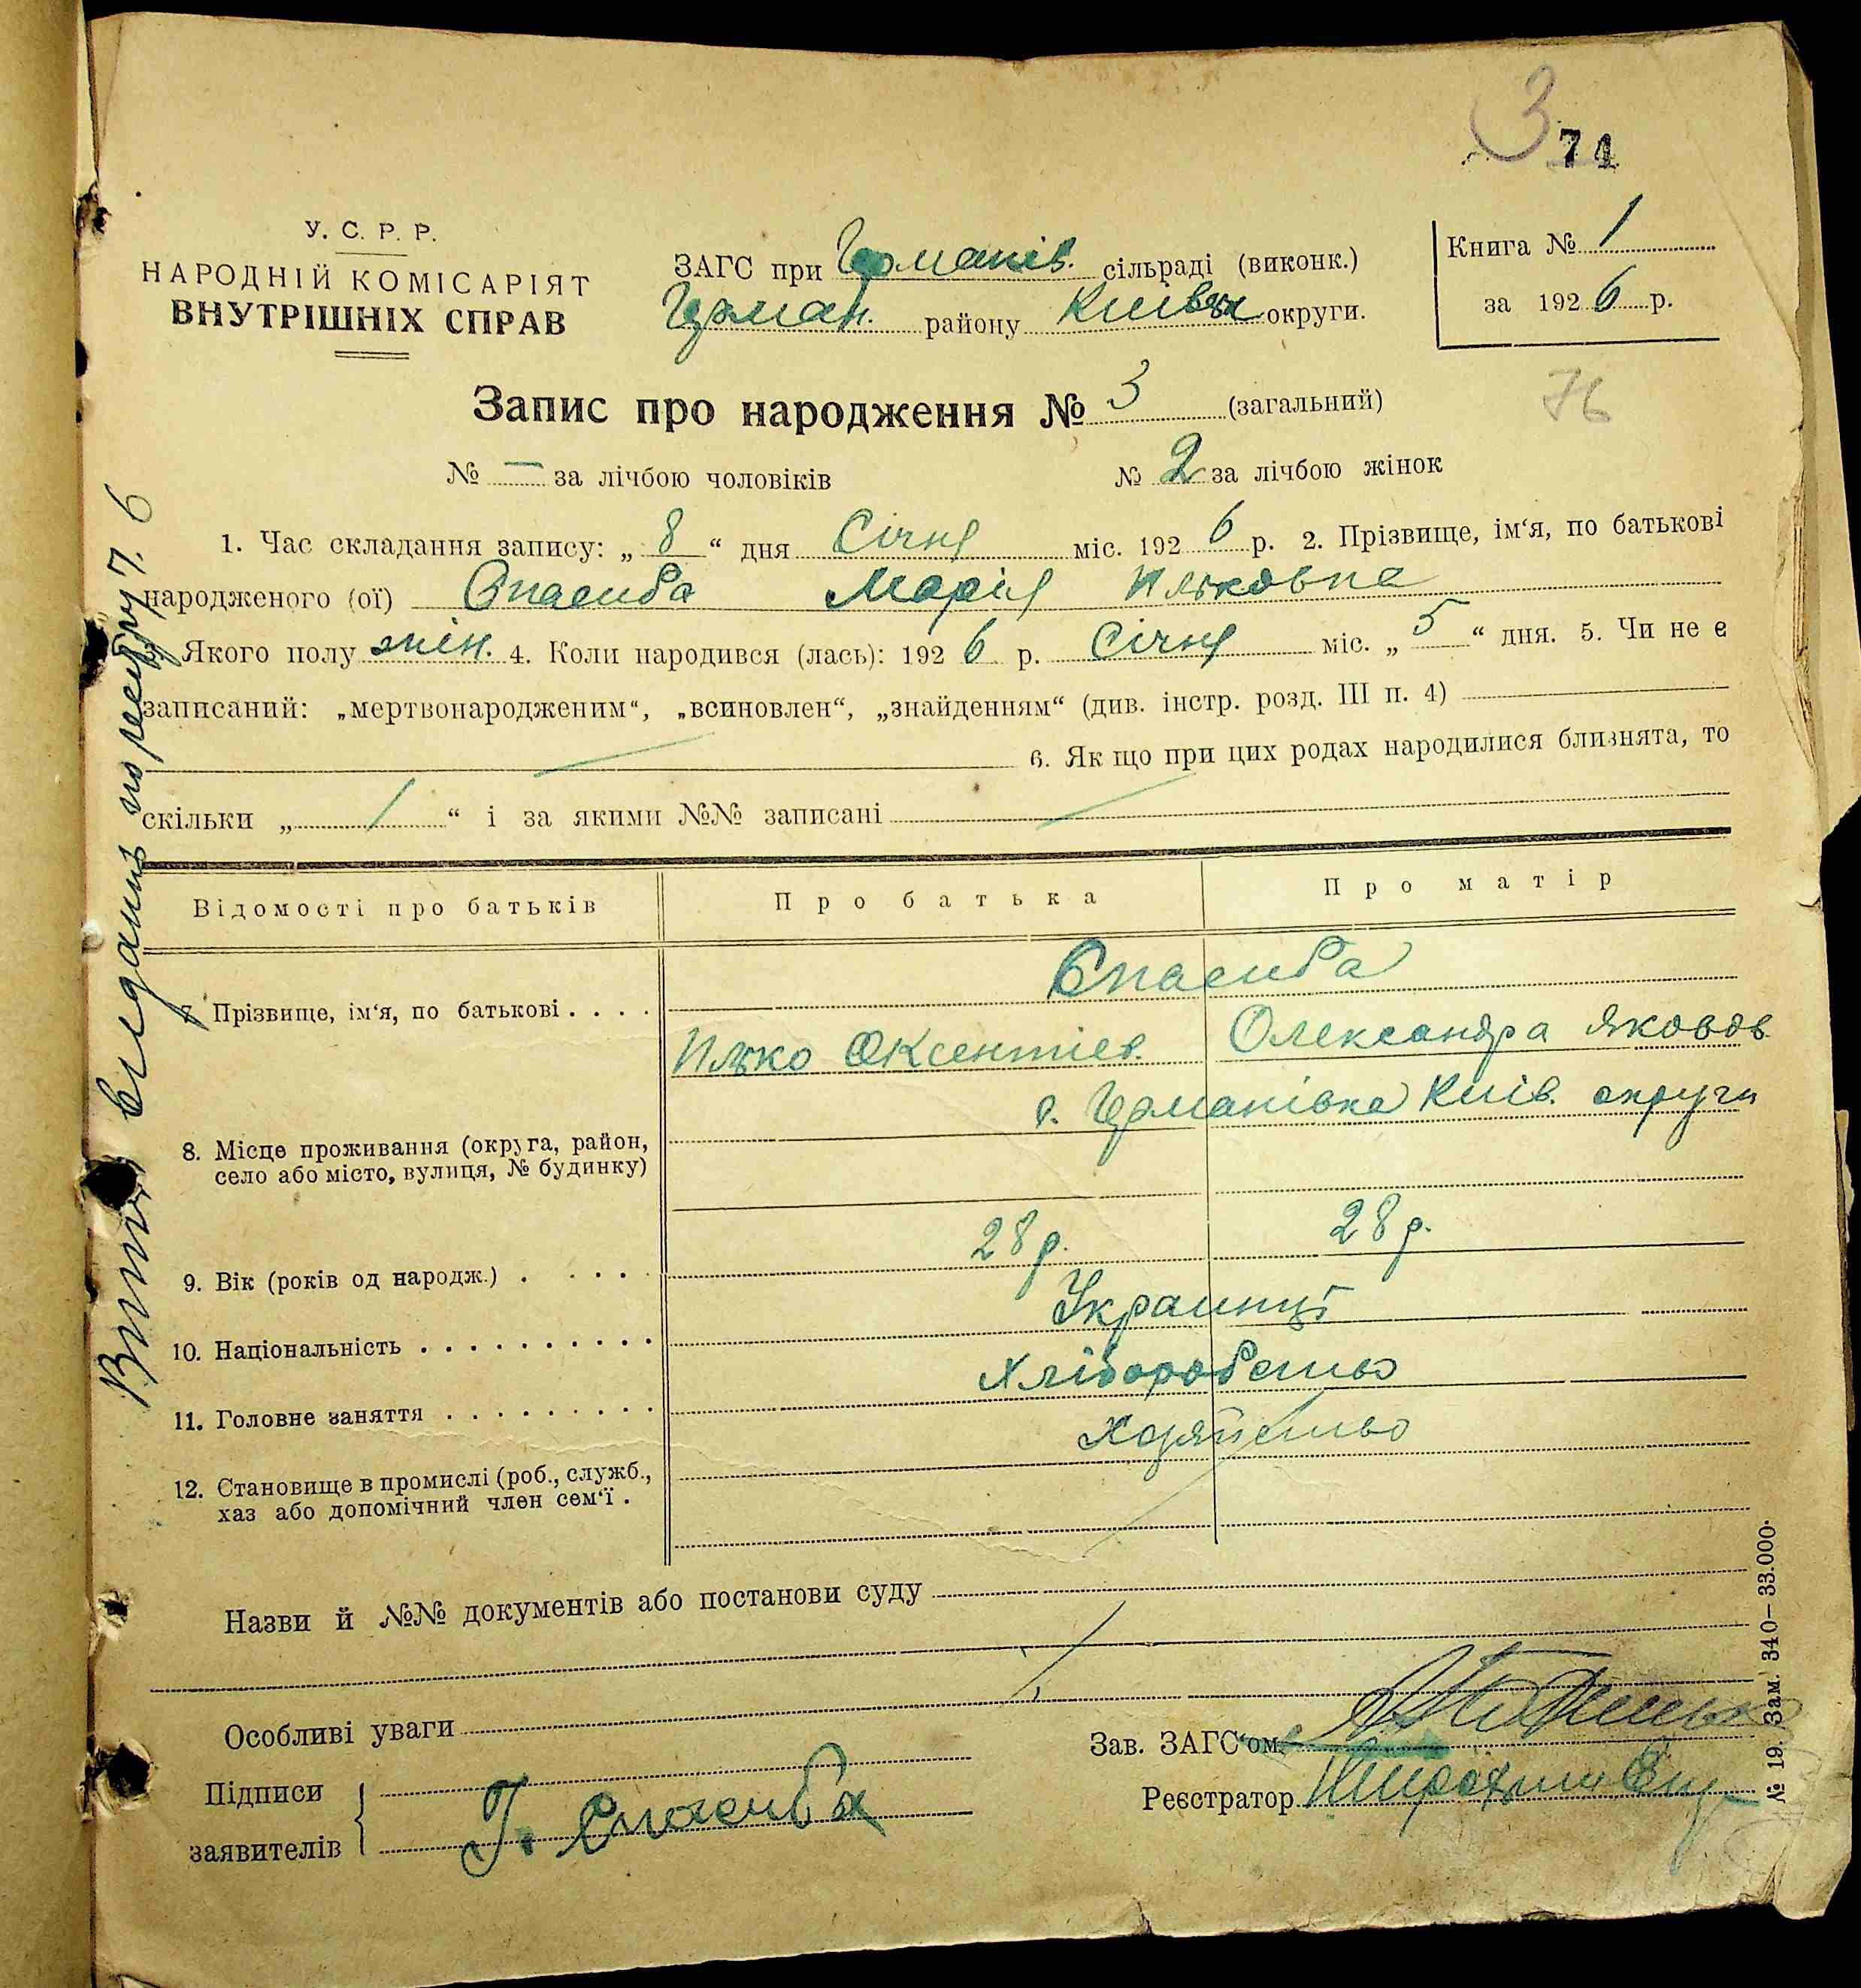 3 74
У. С. Р. Р.
НАРОДНІЙ КОМІСАРІЯТ
ВНУТРІШНІХ СПРАВ
ЗАГС при Германів. сільраді (виконк.)
Герман. району Київськ округи.
Книга № 1
за 1926 р.
Запис про народження № 3 (загальний)
76
№ — за лічбою чоловіків № 2 за лічбою жінок
1. Час складання запису: „ 8 “ дня Січня міс. 1926 р. 2. Прізвище, ім‘я, по батькові
народженого (ої) Спасиба Марія Ильковна
Якого полу жін. 4. Коли народився (лась): 1926 р. Січня міс. „ 5 “ дня. 5. Чи не є
записаний: „мертвонародженим“, „всиновлен“, „знайденням“ (див. інстр. розд. III п. 4)
6. Як що при цих родах народилися близнята, то
скільки „ / “ і за якими №№ записані
Відомості про батьків Про батька Про матір
7. Прізвище, ім‘я, по батькові . . . .
Спасиба
Илько Оксентіев. Олександра Яковов.
8. Місце проживання (округа, район,
село або місто, вулиця, № будинку)
с. Германівка Київ. округи
9. Вік (років од народж.) . . . . 28 р. 28 р.
10. Національність . . . . . . . . . . Украинці
11. Головне заняття . . . . . . . . . Хліборобство
12. Становище в промислі (роб., служб.,
хаз або допомічний член сем‘ї .
Хозяйство
Назви й №№ документів або постанови суду
Особливі уваги
Підписи
заявителів
Г. Спасиба
Зав. ЗАГС‘ом
Реєстратор
№ 19. Зам. 340–33.000.
видання по реєстру 7. 6